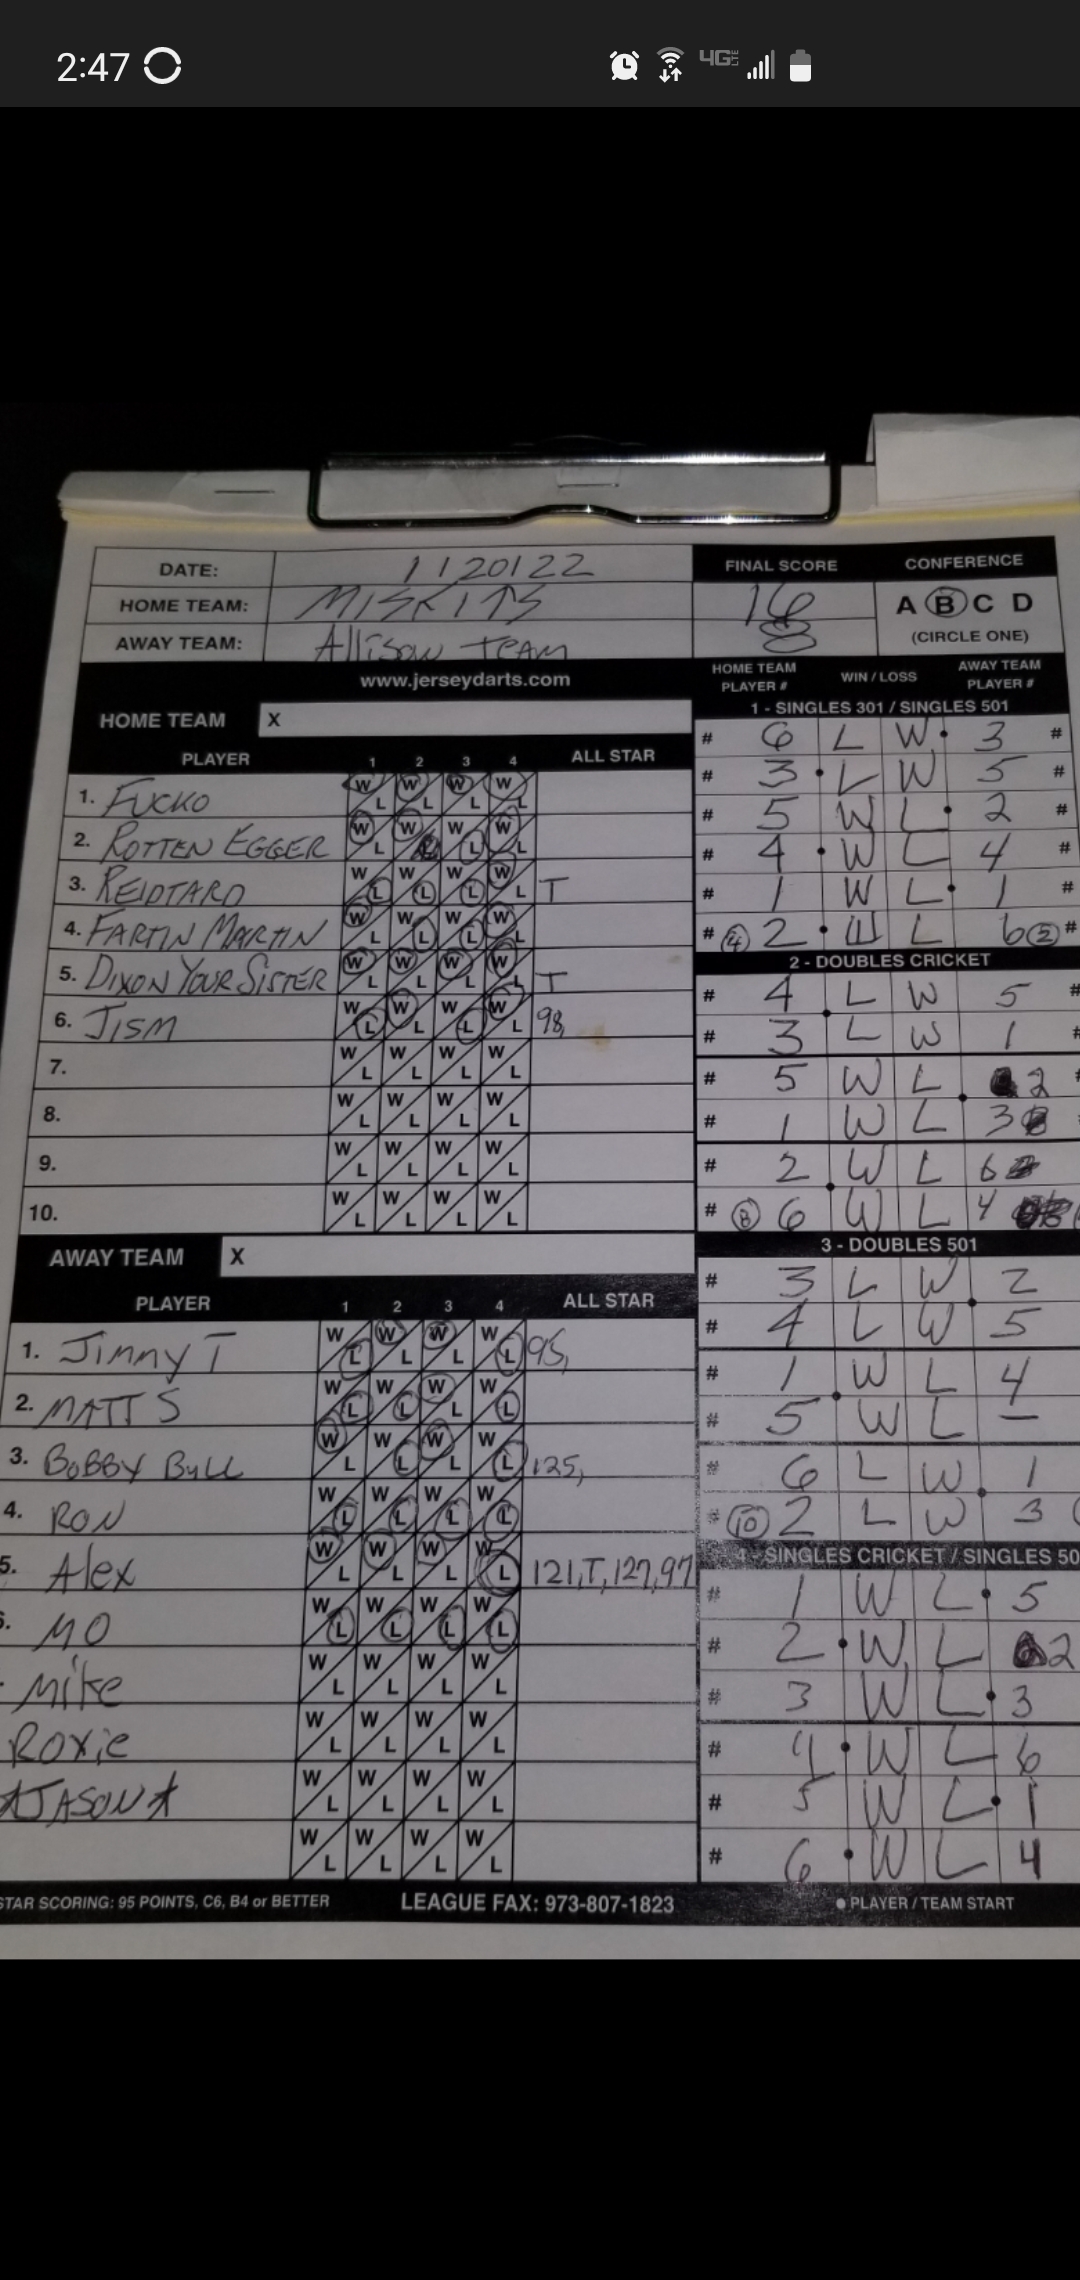 2:47 4G LTE
DATE: 1/20/22
HOME TEAM: MISKITS
AWAY TEAM: Allison Team
FINAL SCORE
16
8
CONFERENCE
A B C D
(CIRCLE ONE)
www.jerseydarts.com
HOME TEAM X
PLAYER 1 2 3 4 ALL STAR
1. FUCKO W L W L W L W L
2. ROTTEN EGGER W L W L W L W L
3. REIDTARD W L W L W L W L T
4. FARTIN MARTIN W L W L W L W L
5. DIXON YOUR SISTER W L W L W L W L T
6. JISM W L W L W L W L 98,
7. W L W L W L W L
8. W L W L W L W L
9. W L W L W L W L
10. W L W L W L W L
AWAY TEAM X
PLAYER 1 2 3 4 ALL STAR
1. JIMMY T W L W L W L W L 95,
2. MATT S W L W L W L W L
3. BOBBY BULL W L W L W L W L 125,
4. RON W L W L W L W L
5. Alex W L W L W L W L 121,T,127,97
MO W L W L W L W L
Mike W L W L W L W L
Roxie W L W L W L W L
JASON W L W L W L W L
W L W L W L W L
STAR SCORING: 95 POINTS, C6, B4 or BETTER LEAGUE FAX: 973-807-1823
HOME TEAM PLAYER # WIN / LOSS AWAY TEAM PLAYER #
1 - SINGLES 301 / SINGLES 501
# 6 L W 3 #
# 3 L W 5 #
# 5 W L 2 #
# 4 W L 4 #
# 1 W L 1 #
# 4 2 W L 6 2 #
2 - DOUBLES CRICKET
# 4 L W 5 #
# 3 L W 1 #
# 5 W L 2 #
# 1 W L 3
# 2 W L 6
# 8 6 W L 4
3 - DOUBLES 501
# 3 L W 2
# 4 L W 5
# 1 W L 4
# 5 W L —
# 6 L W 1
# 10 2 L W 3
4 - SINGLES CRICKET / SINGLES 50
# 1 W L 5
# 2 W L 2
# 3 W L 3
# 4 W L 6
# 5 W L 1
# 6 W L 4
● PLAYER / TEAM START